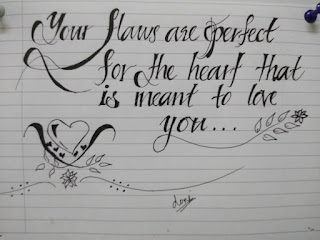 Your flaws are perfect
for the heart that
is meant to love
you...